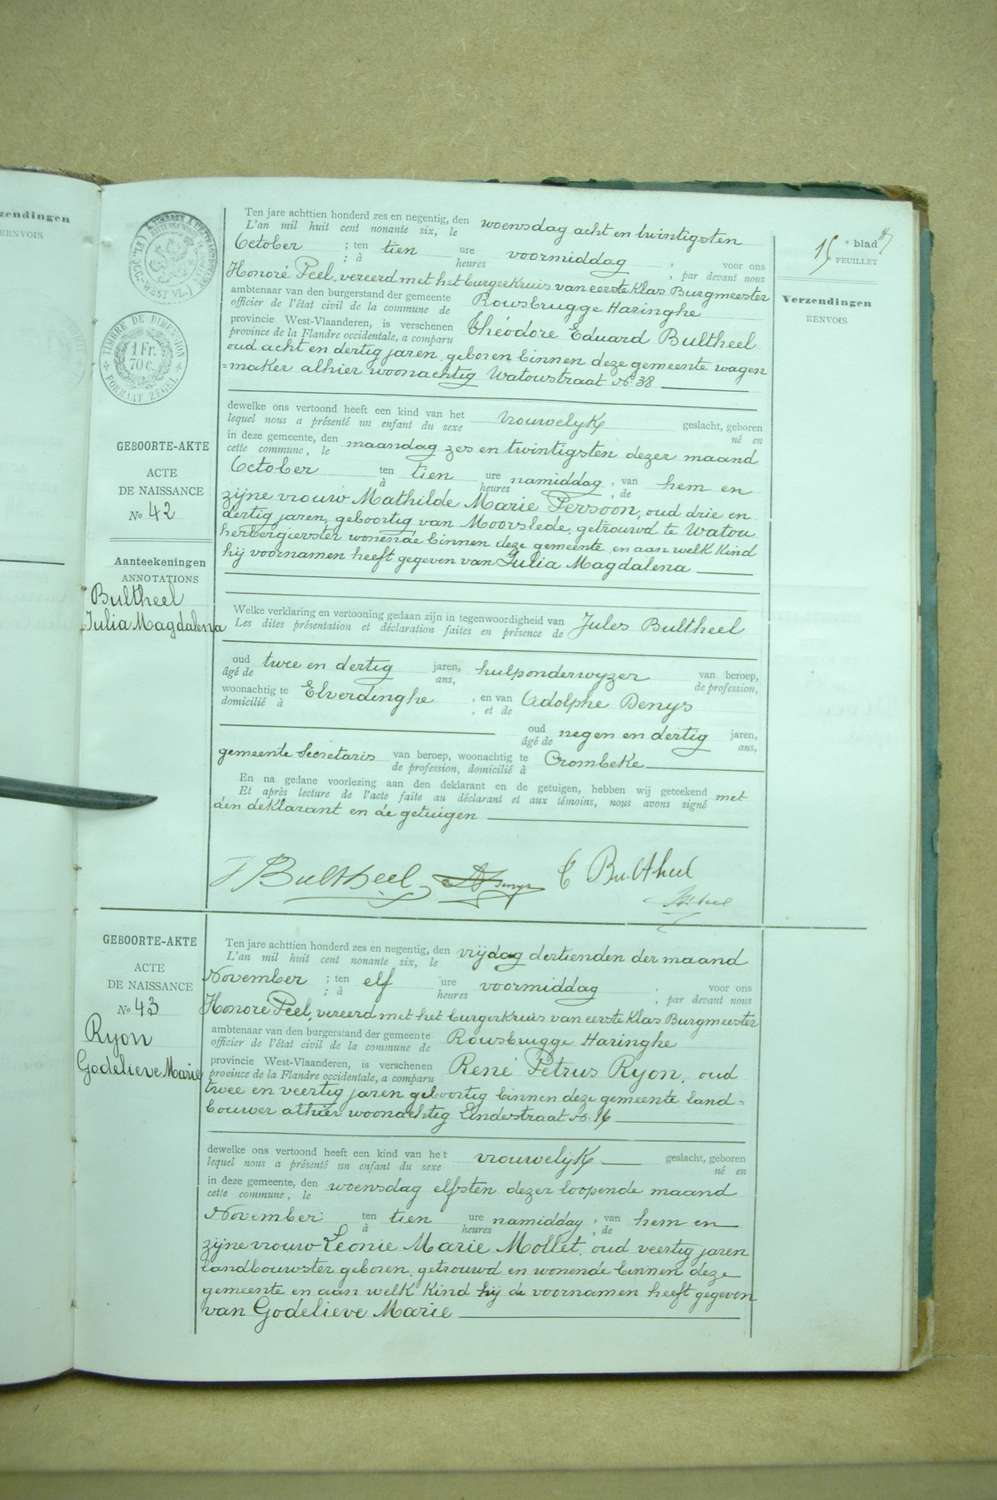 zendingen
RENVOIS
15e blad
FEUILLET
Verzendingen
RENVOIS
TIMBRE DE DIMENSION
1 Fr.
70 c.
FORMAAT ZEGEL
GEBOORTE-AKTE
ACTE
DE NAISSANCE
No 42
Aanteekeningen
ANNOTATIONS
Bultheel
Julia Magdalena
Ten jare achttien honderd zes en negentig, den woensdag acht en twintigsten
L'an mil huit cent nonante six, le
October ; ten tien ure voormiddag , voor ons
; à heures , par devant nous
Honoré Peel, vereerd met het burgerkruis van eerste klas Burgmeester
ambtenaar van den burgerstand der gemeente Rousbrugge Haringhe
officier de l'état civil de la commune de
provincie West-Vlaanderen, is verschenen Théodore Eduard Bultheel
province de la Flandre occidentale, a comparu
oud acht en dertig jaren, geboren binnen deze gemeente wagen
=maker alhier woonachtig Watoustraat No 38
dewelke ons vertoond heeft een kind van het vrouwelyk geslacht, geboren
lequel nous a présenté un enfant du sexe né en
in deze gemeente, den maandag zes en twintigsten dezer maand
cette commune, le
October ten tien ure namiddag , van hem en
à heures , de
zijne vrouw Mathilde Marie Persoon, oud drie en
dertig jaren, geboortig van Moorslede, getrouwd te Watou
herbergierster wonende binnen deze gemeente, en aan welk kind
hij voornamen heeft gegeven van Julia Magdalena
Welke verklaring en vertooning gedaan zijn in tegenwoordigheid van Jules Bultheel
Les dites présentation et déclaration faites en présence de
oud twee en dertig jaren, hulponderwyzer van beroep,
âgé de ans, de profession,
woonachtig te Elverdinghe , en van Adolphe Denys
domicilié à , et de
oud negen en dertig jaren,
âgé de ans,
gemeente Secretaris van beroep, woonachtig te Crombeke
de profession, domicilié à
En na gedane voorlezing aan den deklarant en de getuigen, hebben wij geteekend met
Et après lecture de l'acte faite au déclarant et aux témoins, nous avons signé
den deklarant en de getuigen
J Bultheel Denys Bultheel
GEBOORTE-AKTE
ACTE
DE NAISSANCE
No 43
Ryon
Godelieve Marie
Ten jare achttien honderd zes en negentig, den vrijdag dertienden der maand
L'an mil huit cent nonante six, le
November ; ten elf ure voormiddag , voor ons
; à heures , par devant nous
Honoré Peel, vereerd met het burgerkruis van eerste klas Burgmeester
ambtenaar van den burgerstand der gemeente Rousbrugge Haringhe
officier de l'état civil de la commune de
provincie West-Vlaanderen, is verschenen René Petrus Ryon, oud
province de la Flandre occidentale, a comparu
twee en veertig jaren geboortig binnen deze gemeente land=
bouwer alhier woonachtig Lindestraat No 16
dewelke ons vertoond heeft een kind van het vrouwelyk geslacht, geboren
lequel nous a présenté un enfant du sexe né en
in deze gemeente, den woensdag elfsten dezer loopende maand
cette commune, le
November ten tien ure namiddag , van hem en
à heures , de
zijne vrouw Leonie Marie Mollet, oud veertig jaren
landbouwster geboren, getrouwd en wonende binnen deze
gemeente en aan welk kind hij de voornamen heeft gegeven
van Godelieve Marie